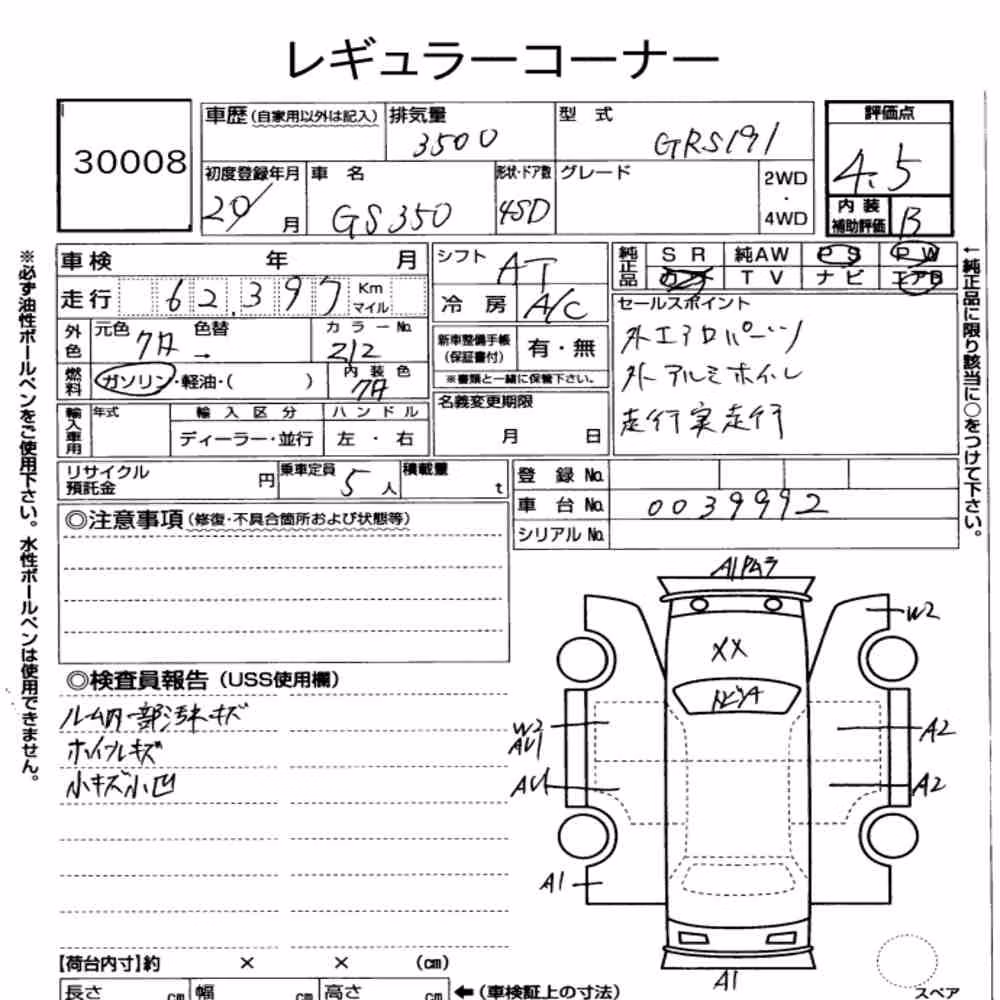 レギュラーコーナー
30008
車歴(自家用以外は記入) 排気量 型式 評価点
3500 GRS191 4.5
初度登録年月 車名 形状・ドア数 グレード 2WD・4WD
20/ 月 GS350 4SD
内装補助評価 B
車検 年 月 シフト AT
純正品 SR 純AW PS PW
TV ナビ エアB
走行 62,397 Km マイル 冷房 A/C
セールスポイント
外エアロパーツ
外アルミホイル
走行実走行
外色 元色 色替 カラーNo.
クロ → 212
新車整備手帳(保証書付) 有・無
※書類と一緒に保管下さい。
燃料 ガソリン・軽油・( ) 内装色 クロ
名義変更期限
月 日
輸入車用 年式 輸入区分 ハンドル
ディーラー・並行 左・右
リサイクル預託金 円 乗車定員 5人 積載量 t
登録No.
車台No. 0039992
シリアルNo.
◎注意事項(修復・不具合箇所および状態等)
◎検査員報告(USS使用欄)
ルーム内一部汚れキズ
ホイールキズ
小キズ小凹
A1
W2
XX
トビソA
W2
AU1
A2
AU1
A2
A1
A1
【荷台内寸】約 × × (cm)
長さ cm 幅 cm 高さ cm ←(車検証上の寸法)
スペア
※必ず油性ボールペンをご使用下さい。水性ボールペンは使用できません。
←純正品に限り該当に○をつけて下さい。